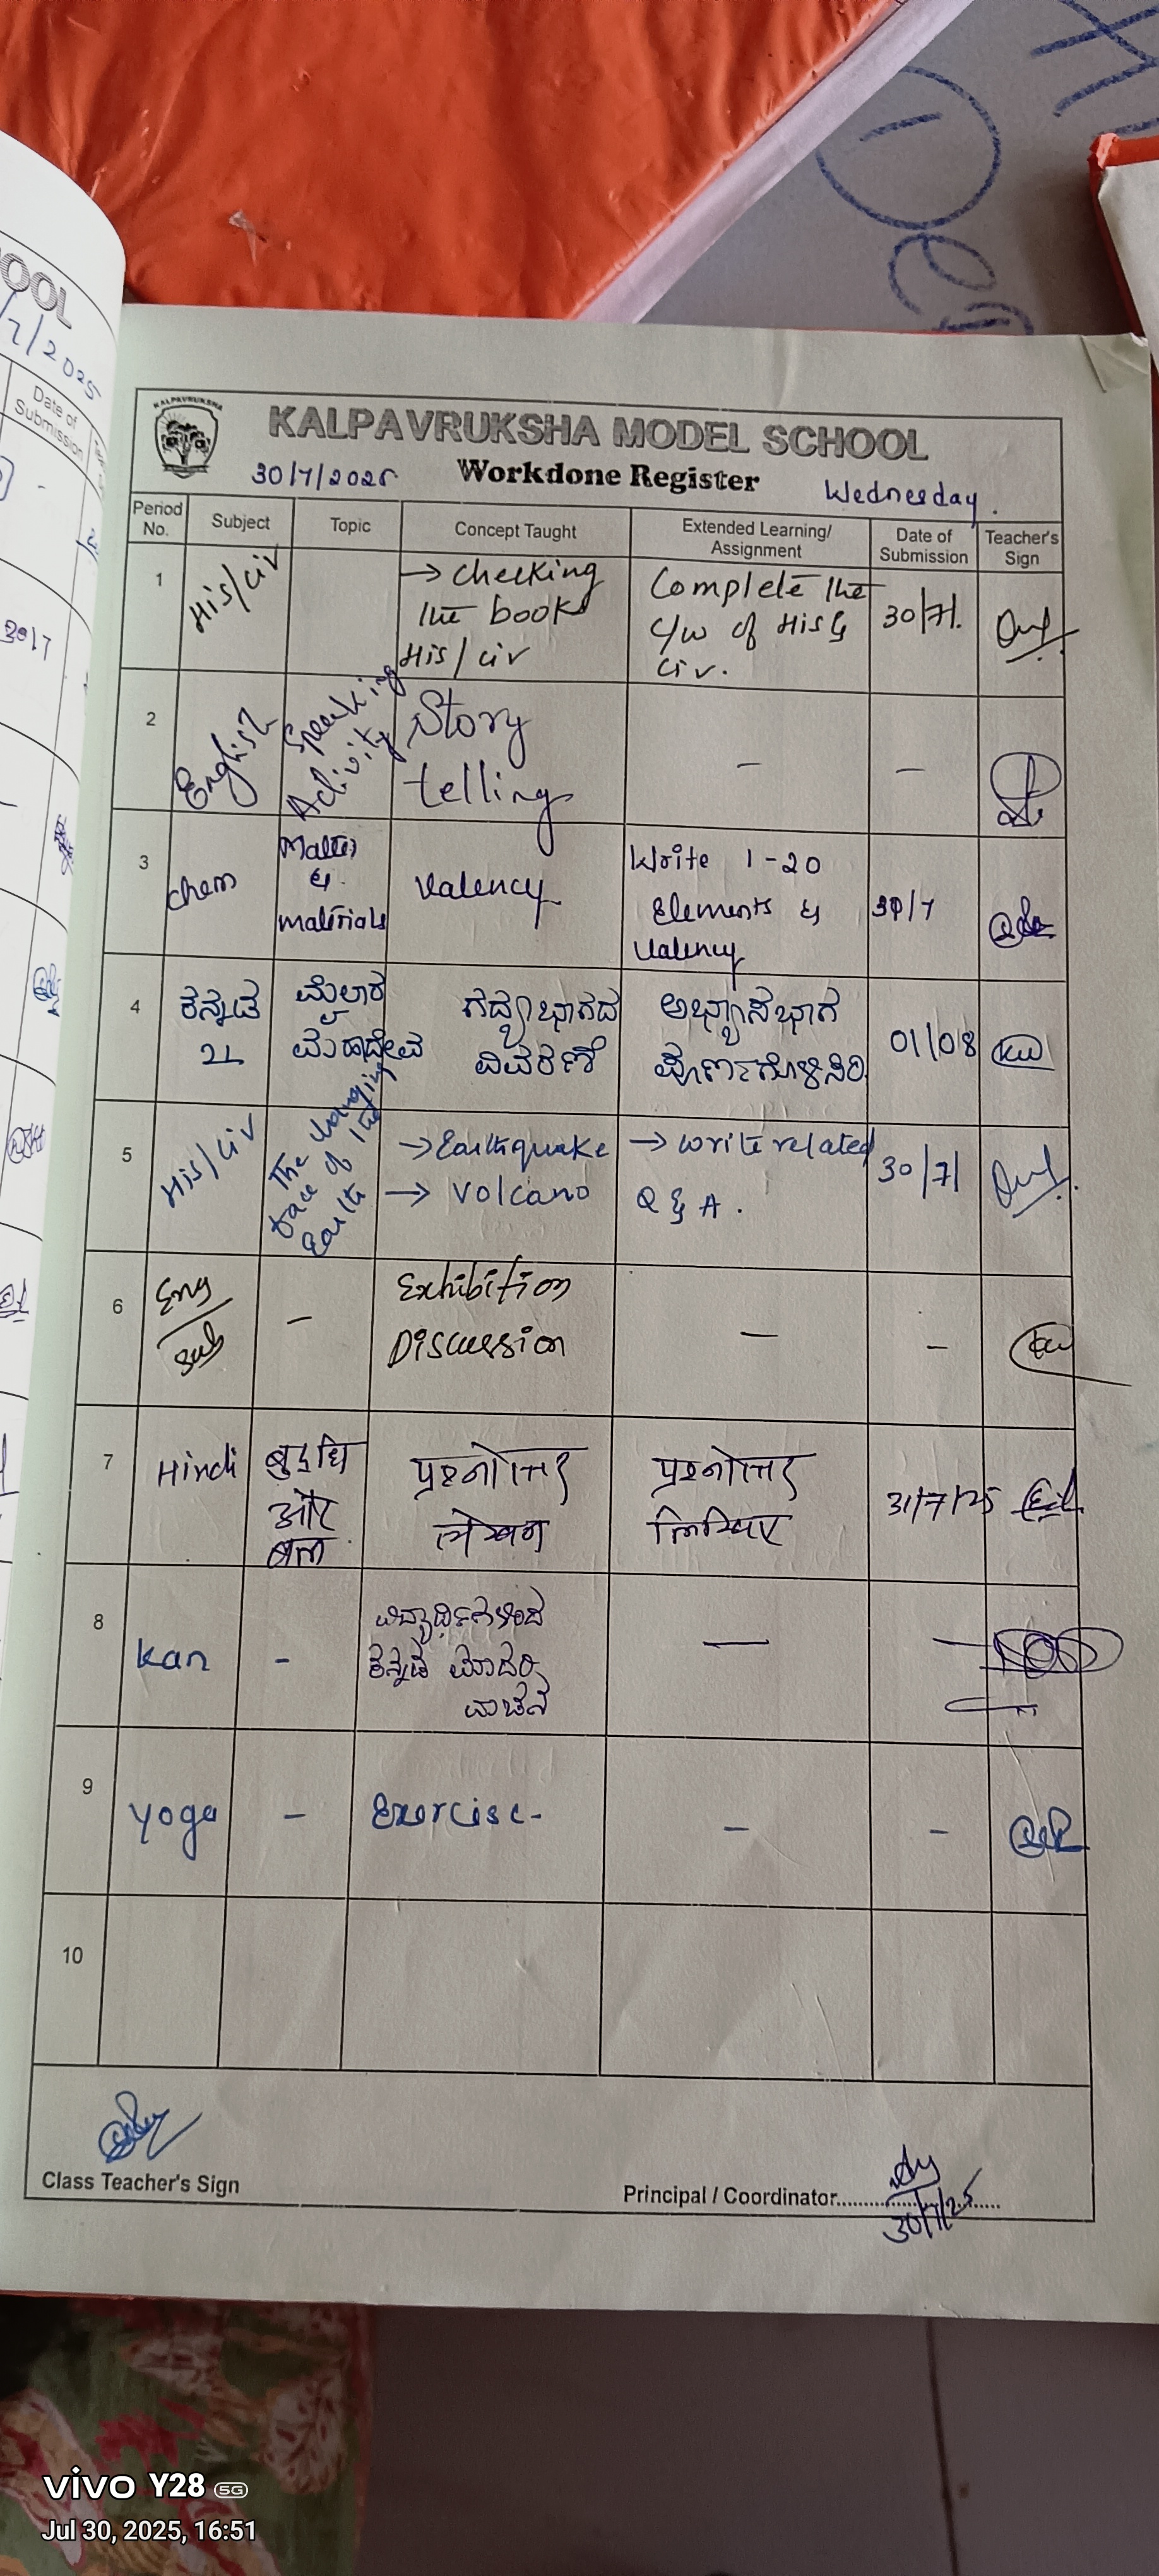 OOL
/7/2025
Date of
Submission
30/7
KALPAVRUKSHA
KALPAVRUKSHA MODEL SCHOOL
30/7/2025 Workdone Register Wednesday.
Period No. Subject Topic Concept Taught Extended Learning/ Assignment Date of Submission Teacher's Sign
1 His/civ → checking Complete the 30/7/.
the books c/w of His &
His/civ civ.
2 English Speaking Activity Story telling – –
3 chem Matter & materials Valency Write 1-20 30/7
Elements &
Valency
4 ಕನ್ನಡ ಮೈಲಾರ ಗದ್ಯಭಾಗದ ಅಭ್ಯಾಸಭಾಗ 01/08
2L ಮಹಾದೇವ ವಿವರಣೆ ಪೂರ್ಣಗೊಳಿಸಿರಿ.
5 His/civ The changing face of the Earth → Earthquake → write related 30/7/
→ Volcano Q & A.
6 Eng Exhibition
Sub – Discussion – –
7 Hindi बुद्धि प्रश्नोत्तर प्रश्नोत्तर 31/7/25
और लेखन लिखिए
बल
8 Kan – ವಿದ್ಯಾರ್ಥಿಗಳಿಂದ — —
ಕನ್ನಡ ಮಾದರಿ
ವಾಚನ
9 Yoga – Exercise - – –
10
Class Teacher's Sign
Principal / Coordinator
30/7/25
vivo Y28 5G
Jul 30, 2025, 16:51